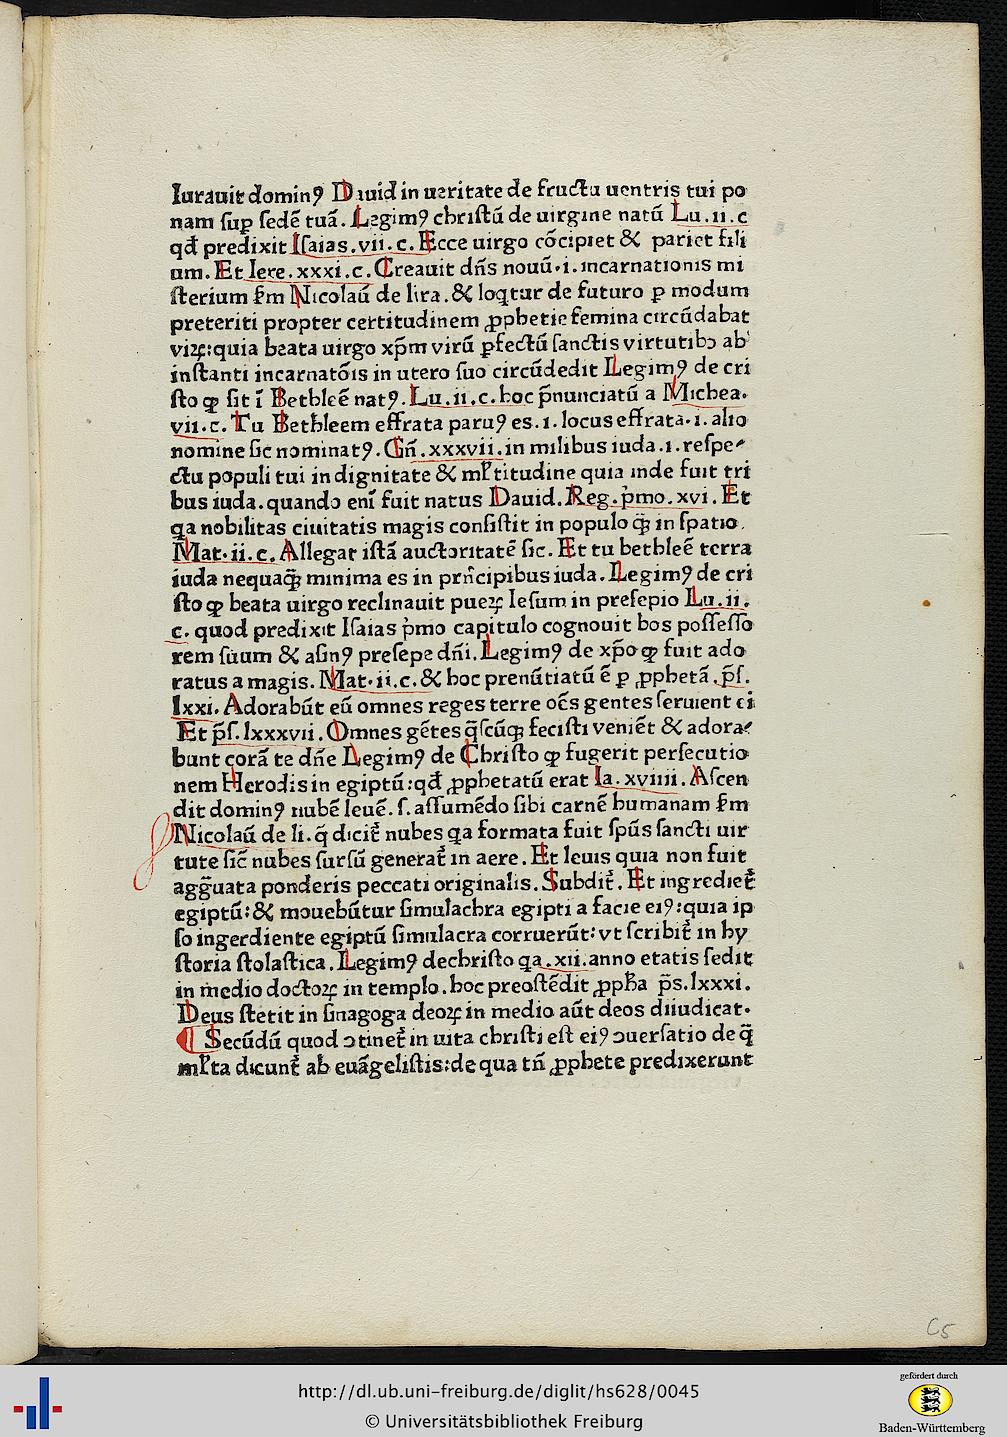 Iurauit dominꝰ Dauid in ueritate de fructu uentris tui po
nam suꝑ sedē tuā. Legimꝰ christū de uirgine natū Lu.ii.c
qđ predixit Isaias.vii.c. Ecce uirgo cōcipiet & pariet fili
um. Et Iere.xxxi.c. Creauit dn̄s nouū.i.incarnationis mi
sterium ẜm Nicolaū de lira.& loqtur de futuro ꝑ modum
preteriti propter certitudinem ꝓphetie femina circūdabat
viꝝ:quia beata uirgo xp̄m virū ꝑfectū sanctis virtutibꝫ ab
instanti incarnatōis in utero suo circūdedit Legimꝰ de cri
sto ꝙ sit ī Bethleē natꝰ. Lu.ii.c.hoc p̄nunciatū a Michea.
vii.c. Tu Bethleem effrata paruꝰ es.i.locus effrata.i.alio
nomine sic nominatꝰ. Gn̄.xxxvii.in milibus iuda.i.respe⸗
ctu populi tui in dignitate & ml̄titudine quia inde fuit tri
bus iuda.quando enī fuit natus Dauid. Reg.p̄mo.xvi. Et
qa nobilitas ciuitatis magis consistit in populo q̄ꝫ in spatio.
Mat.ii.c. Allegat istā auctoritatē sic. Et tu bethleē terra
iuda nequaq̄ꝫ minima es in prīcipibus iuda. Legimꝰ de cri
sto ꝙ beata uirgo reclinauit pueꝝ Iesum in presepio Lu.ii.
c. quod predixit Isaias p̄mo capitulo cognouit bos possesso
rem suum & asinꝰ presepe dn̄i. Legimꝰ de xp̄o ꝙ fuit ado
ratus a magis. Mat.ii.c.& hoc prenūtiatū ē ꝑ ꝓphetā.p̄s.
lxxi. Adorabūt eū omnes reges terre oēs gentes seruient ei
Et p̄s.lxxxvii. Omnes gētes q̄scūqꝫ fecisti veniēt & adora⸗
bunt corā te dn̄e Legimꝰ de Christo ꝙ fugerit persecutio
nem Herodis in egiptū:qđ ꝓphetatū erat Ia.xviiii. Ascen
dit dominꝰ nubē leuē.s.assumēdo sibi carnē humanam ẜm
Nicolaū de li.q̄ dicit̄ nubes qa formata fuit sp̄us sancti uir
tute sic̄ nubes sursū generat̄ in aere. Et leuis quia non fuit
agg̃uata ponderis peccati originalis. Subdit̄. Et ingrediet̄
egiptū:& mouebūtur simulachra egipti a facie eiꝰ:quia ip
so ingerdiente egiptū simulacra corruerūt:vt scribit̄ in hy
storia stolastica. Legimꝰ dechristo qa.xii.anno etatis sedit
in medio doctoꝝ in templo.hoc preostēdit ꝓpħa p̄s.lxxxi.
Deus stetit in sinagoga deoꝝ in medio aūt deos diiudicat.
¶ Secūdū quod ↄtinet̄ in uita christi est eiꝰ ↄuersatio de q̄
ml̄ta dicunt̄ ab euāgelistis:de qua tn̄ ꝓphete predixerunt
C5
http://dl.ub.uni-freiburg.de/diglit/hs628/0045
© Universitätsbibliothek Freiburg
gefördert durch
Baden-Württemberg